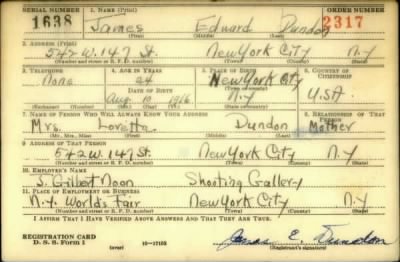 SERIAL NUMBER 1. NAME (Print) ORDER NUMBER
1638 James Edward Dundon 2317
(First) (Middle) (Last)
2. ADDRESS (Print)
542 W. 147 St. New York City N.Y
(Number and street or R. F. D. number) (Town) (County) (State)
3. TELEPHONE 4. AGE IN YEARS 5. PLACE OF BIRTH 6. COUNTRY OF CITIZENSHIP
None 24 New York City
DATE OF BIRTH (Town or county)
Aug. 10 1916 N.Y U.S.A
(Exchange) (Number) (Mo.) (Day) (Yr.) (State or country)
7. NAME OF PERSON WHO WILL ALWAYS KNOW YOUR ADDRESS 8. RELATIONSHIP OF THAT PERSON
Mrs. Loretta Dundon Mother
(Mr., Mrs., Miss) (First) (Middle) (Last)
9. ADDRESS OF THAT PERSON
542 W. 147 St. New York City N.Y
(Number and street or R. F. D. number) (Town) (County) (State)
10. EMPLOYER'S NAME
J. Gilbert Noon Shooting Gallery
11. PLACE OF EMPLOYMENT OR BUSINESS
N.Y. World's Fair New York City N.Y
(Number and street or R. F. D. number) (Town) (County) (State)
I AFFIRM THAT I HAVE VERIFIED ABOVE ANSWERS AND THAT THEY ARE TRUE.
REGISTRATION CARD
D. S. S. Form 1 (over) 16—17105 James E. Dundon
(Registrant's signature)